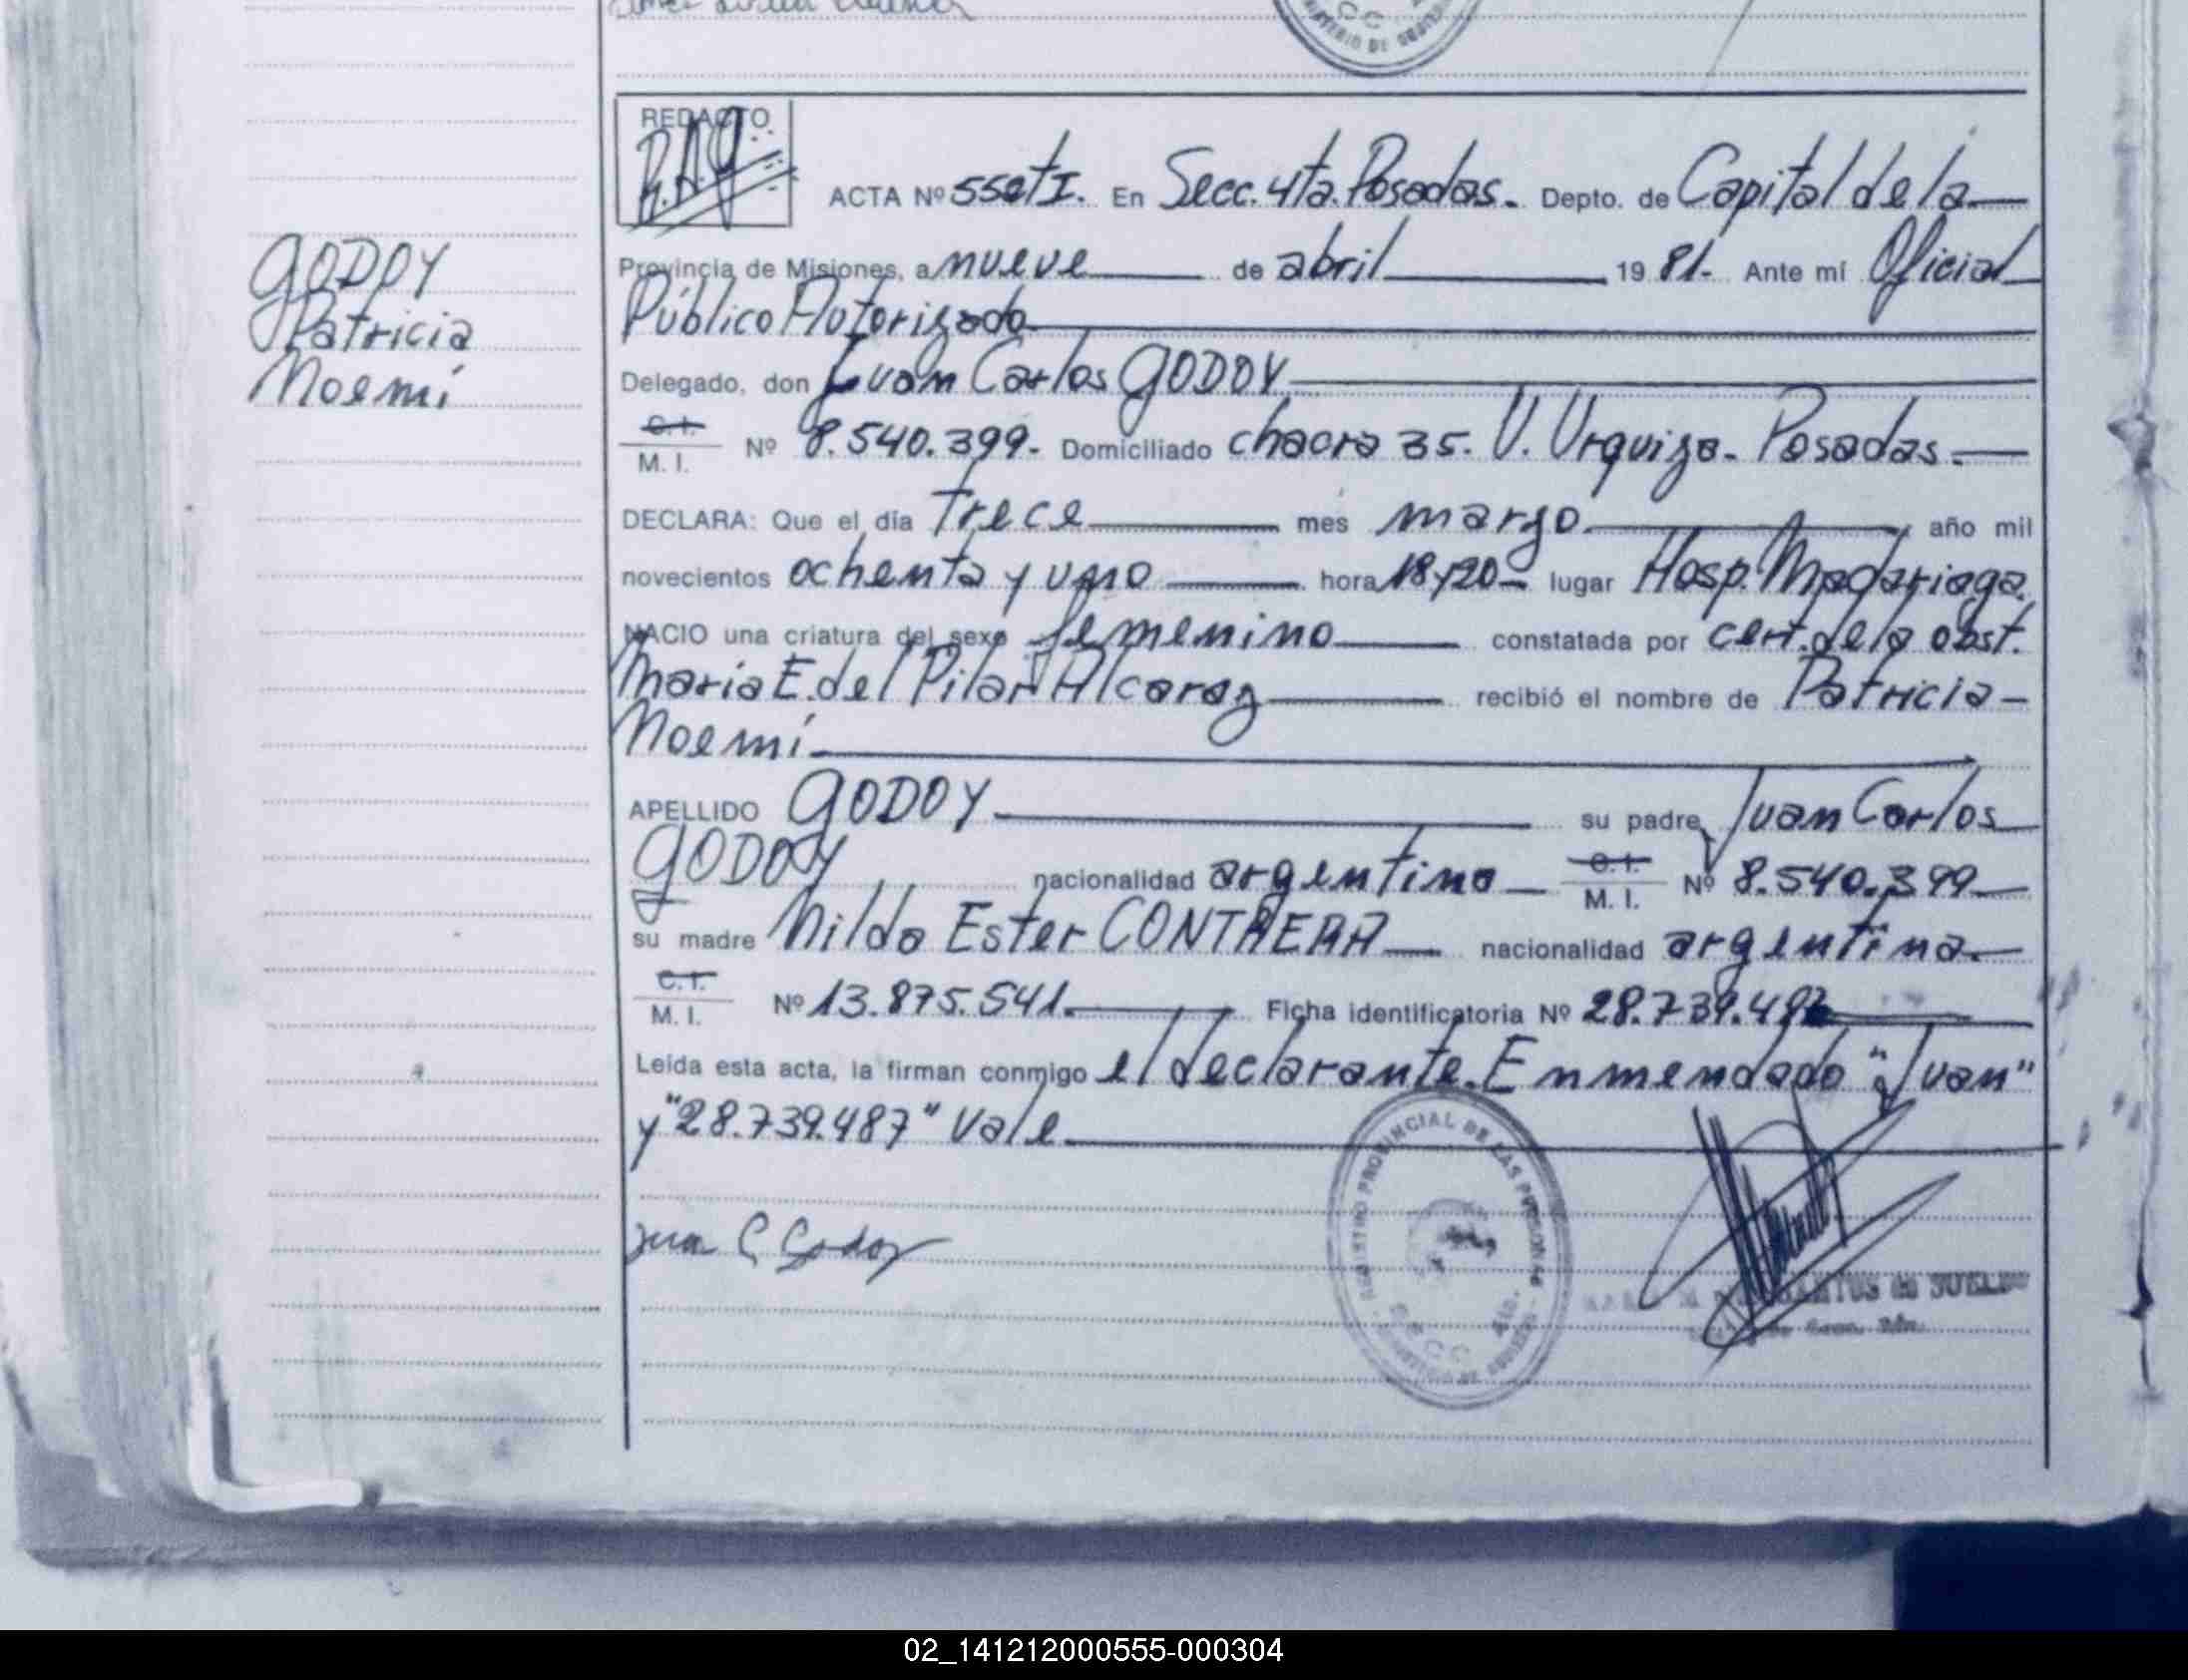 MINISTERIO DE
REDACTO
ACTA Nº 550 t I. En Secc. 4ta. Posadas. Depto. de Capital de la
GODOY
Patricia
Noemí
Provincia de Misiones, a nueve de abril 1981. Ante mí Oficial
Público Autorizado
Delegado, don Juan Carlos GODOY
C. I. / M. I. Nº 8.540.399. Domiciliado chacra 35. V. Urquiza. Posadas.
DECLARA: Que el día trece mes marzo año mil
novecientos ochenta y uno hora 18y20 lugar Hosp. Madariaga.
NACIO una criatura del sexo femenino constatada por cert. de la obst.
Maria E. del Pilar Alcaraz recibió el nombre de Patricia
Noemí
APELLIDO GODOY su padre Juan Carlos
GODOY nacionalidad argentino C. I. / M. I. Nº 8.540.399
su madre Nilda Ester CONTRERA nacionalidad argentina.
C. I. / M. I. Nº 13.875.541. Ficha identificatoria Nº 28.739.487
Leída esta acta, la firman conmigo el declarante. Enmendado "Juan"
y "28.739.487" Vale
Juan C Godoy
REGISTRO PROVINCIAL DE LAS PERSONAS
SECC 4ta.
MINISTERIO DE
SANTOS de SUELDO
02_141212000555-000304